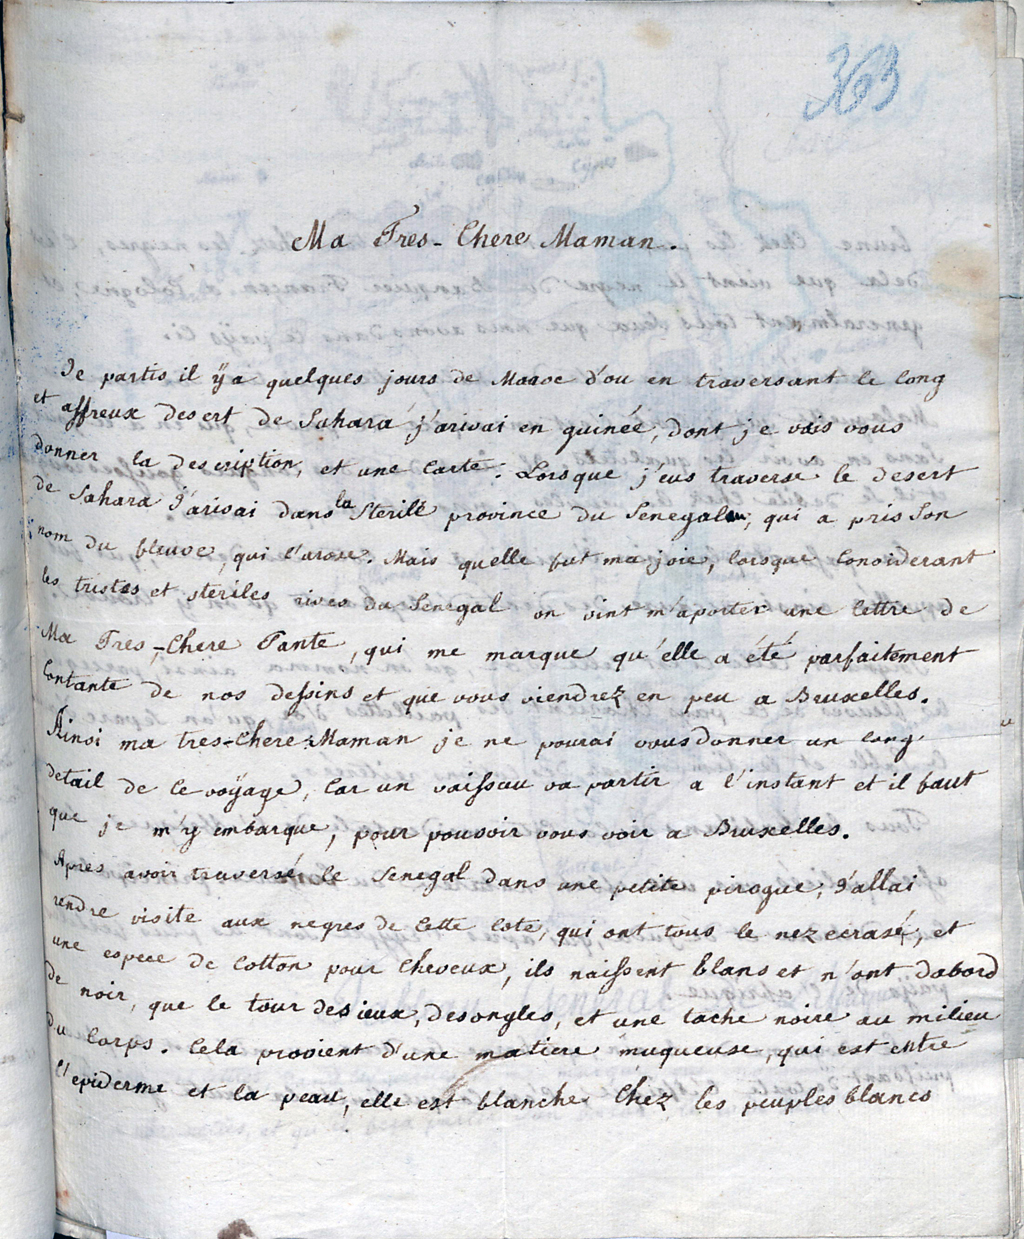 363
Ma Tres-Chere Maman.
Je partis il ÿa quelques jours de Maroc d'ou en traversant le long
et affreux desert de Sahara j'arivai en guinée, dont je vais vous
donner la description, et une Carte. Lorsque j'eus traversé le desert
de Sahara J'arivai dans la Sterile province du Senegal, qui a pris Son
nom du fleuve, qui l'arose. Mais quelle fut ma joie, lorsque Considerant
les tristes et steriles rives du Senegal on vint m'aporter une lettre de
Ma Tres-Chere Tante, qui me marque qu'élle a été parfaitement
Contante de nos dessins et que vous viendrez en peu a Bruxelles.
Ainsi ma tres-Chere-Maman je ne pourai vous donner un long
detail de Ce voÿage, Car un vaisseau va partir a l'instant et il faut
que je m'y embarque, pour pouvoir vous voir a Bruxelles.
Apres avoir traversé le Senegal dans une petite pirogue, J'allai
rendre visite aux negres de Cette Cote, qui ont tous le nez ecrasé, et
une espece de Cotton pour Cheveux, ils naissent blans et n'ont dabord
de noir, que le tour des ieux, des ongles, et une tache noire au milieu
du Corps. Cela provient d'une matiere muqueuse, qui est entre
l'epiderme et la peau, elle est blanche Chez les peuples blancs